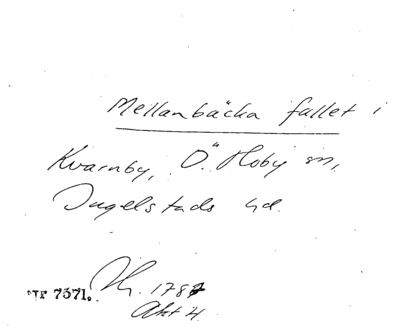 Mellanbäcka fallet i
Kvarnby, Ö. Hoby sn,
Ingelstads hd.
7571.
1787
Akt 4